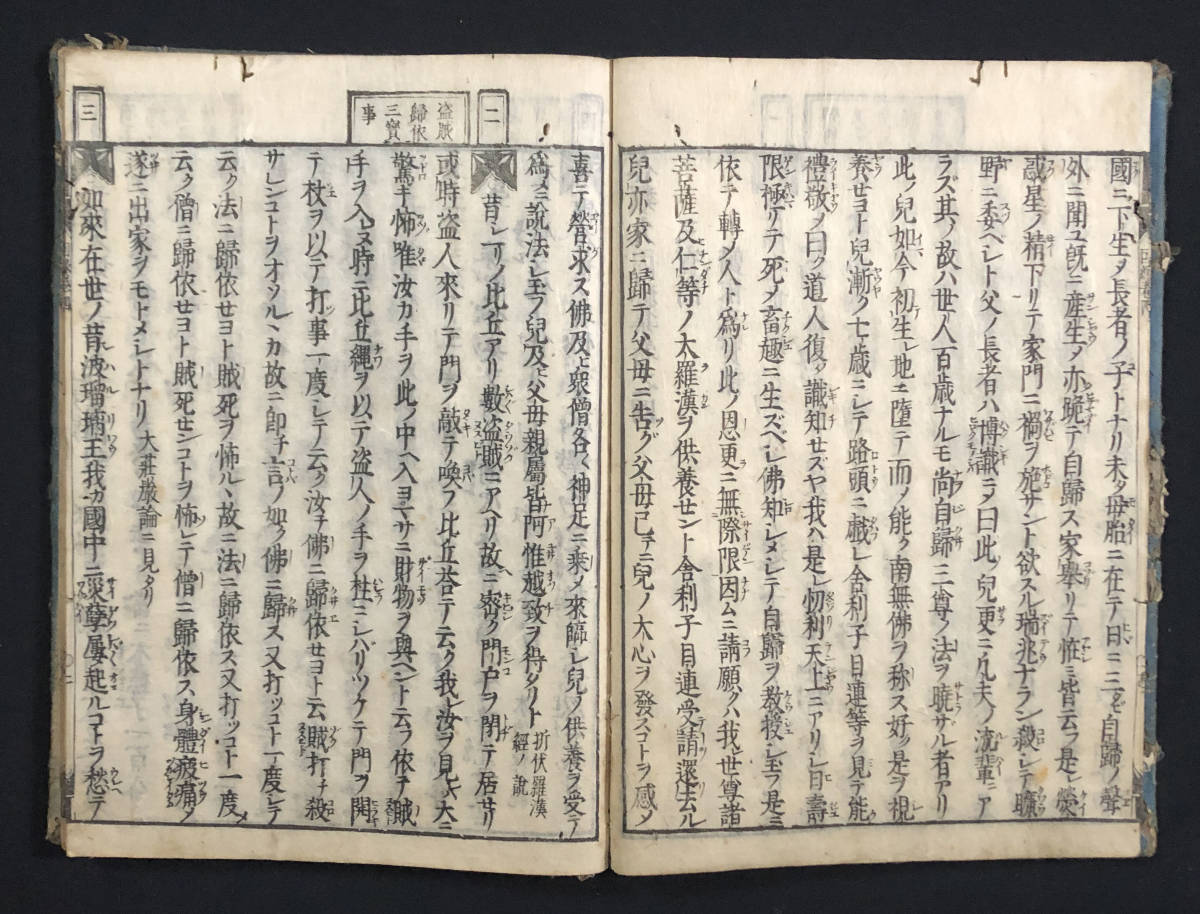 國ニ下生メ長者ノ子トナリ未タ母胎ニ在テ日ニ三ビ自歸ノ聲
外ニ聞ユ既ニ産生メ亦跪テ自歸ス家擧リテ恠ミ皆云フ是レ熒
惑星ノ精下リテ家門ニ禍ヲ施サント欲スル瑞兆ナラン殺シテ曠
野ニ委ヘシト父ノ長者ハ博識ニメ曰此ノ兒更ニ凡夫ノ流輩ニア
ラズ其ノ故ハ世ノ人百歳ナルモ尚自歸三尊ノ法ヲ曉サル者アリ
此ノ兒如今初生レ地ニ墮テ而メ能ク南無佛ヲ称ス好ッ是ヲ視
養セヨト兒漸ク七歳ニシテ路頭ニ戯レ舍利子目連等ヲ見テ能
禮敬メ曰ク道人復タ識知セズヤ我ハ是レ忉利天上ニアリシ日壽
限極リテ死メ畜趣ニ生ズベシ佛知シメシテ自歸ヲ教授シ玉フ是ニ
依テ轉メ人ト爲リ此ノ恩更ニ無際限因ムニ請願クハ我レ世尊諸
菩薩及仁等ノ大羅漢ヲ供養セント舍利子目連受請還去ル
兒亦家ニ歸テ父母ニ告グ父母已ニ兒ノ大心ヲ發スコトヲ感メ
喜テ營求ス佛及ヒ衆僧各々神足ニ乘メ來臨シ兒ノ供養ヲ受テ
爲メニ説法シ玉フ兒及ヒ父母親屬皆阿惟越致ヲ得タリト 折伏羅漢經ノ説
二
盗賊歸依三寶事
昔シ一リノ比丘アリ數盗賊ニアヘリ故ニ密ク門戸ヲ閉テ居セリ
或時盗人來リテ門ヲ敲テ喚フ比丘荅テ云ク我レ汝ヲ見テ大ニ
驚キ怖唯汝カ手ヲ此ノ中ヘ入ヨマサニ財物ヲ與ヘント云フ依テ賊
手ヲ入ヘヌ時ニ比丘縄ヲ以テ盗人ノ手ヲ柱ニシバリツケテ門ヲ開
テ杖ヲ以テ打事一度シテ云ク汝チ佛ニ歸依セヨト云賊打チ殺
サレンコトヲオソルヽカ故ニ即チ言ノ如ク佛ニ歸ス又打ッコト一度シテ
云ク法ニ歸依セヨト賊死ヲ怖ルヽ故ニ法ニ歸依ス又打ッコト一度メ
云ク僧ニ歸依セヨト賊死センコトヲ怖レテ僧ニ歸依ス身體疲痛メ
遂ニ出家ヲモトメシトナリ 大莊嚴論ニ見タリ
三
如來在世ノ昔シ波瑠璃王我カ國中ニ災孽屢起ルコトヲ愁テ